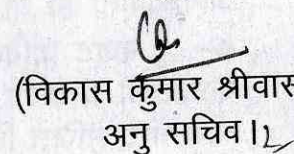 (विकास कुमार श्रीवास
अनु सचिव।